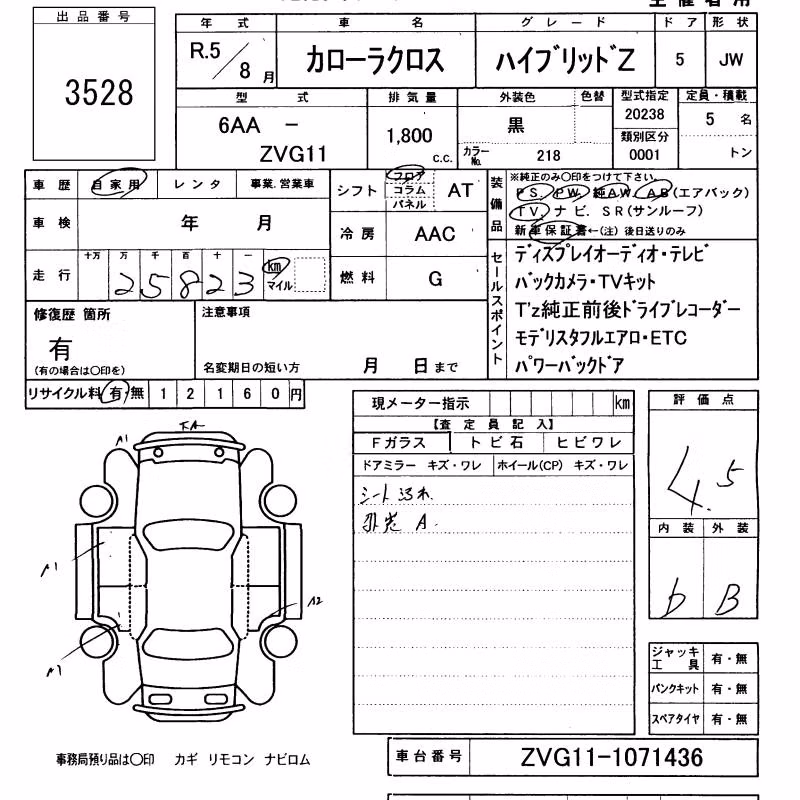 出品番号
3528
年式 車名 グレード ドア 形状
R.5/8月 カローラクロス ハイブリッドZ 5 JW
型式 排気量 外装色 色替 型式指定 定員・積載
6AA - ZVG11 1,800 c.c. 黒 20238 5名
カラーNo. 218 類別区分 0001 トン
車歴 自家用 レンタ 事業.営業車
車検 年 月
走行 十万 万 千 百 十 一
25823 km マイル
シフト フロア コラム パネル AT
冷房 AAC
燃料 G
装備品
※純正のみ〇印をつけて下さい。
PS. PW. 純AW. AB(エアバック)
TV. ナビ. SR(サンルーフ)
新車保証書←(注)後日送りのみ
セールスポイント
ディスプレイオーディオ・テレビ
バックカメラ・TVキット
T'z純正前後ドライブレコーダー
モデリスタフルエアロ・ETC
パワーバックドア
修復歴 箇所
有
(有の場合は〇印を)
注意事項
名変期日の短い方 月 日まで
リサイクル料 有・無 12160円
現メーター指示 km
【査定員記入】
Fガラス トビ石 ヒビワレ
ドアミラー キズ・ワレ ホイール(CP) キズ・ワレ
評価点
4.5
内装 外装
b B
A1
A1
A1
A2
ジャッキ工具 有・無
パンクキット 有・無
スペアタイヤ 有・無
事務局預り品は〇印 カギ リモコン ナビロム
車台番号 ZVG11-1071436